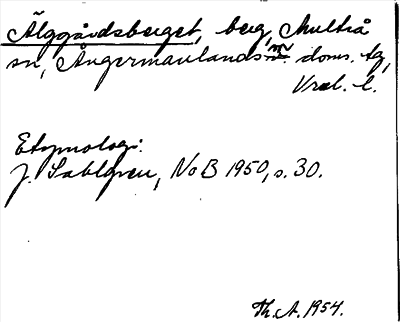 Älggårdsberget, berg, Multrå
sn, Ångermanlands v. doms. tg,
Vnl. l.
Etymologi:
J. Sahlgren, NoB 1950, s. 30.
Th. A. 1954.